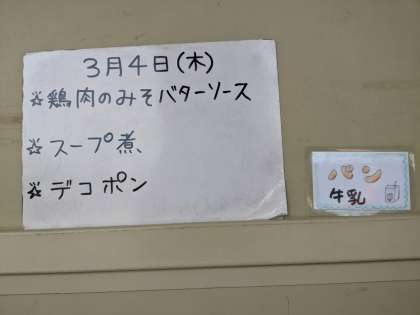 3月4日(木)
☆鶏肉のみそバターソース
☆スープ煮
☆デコポン
パン
牛乳